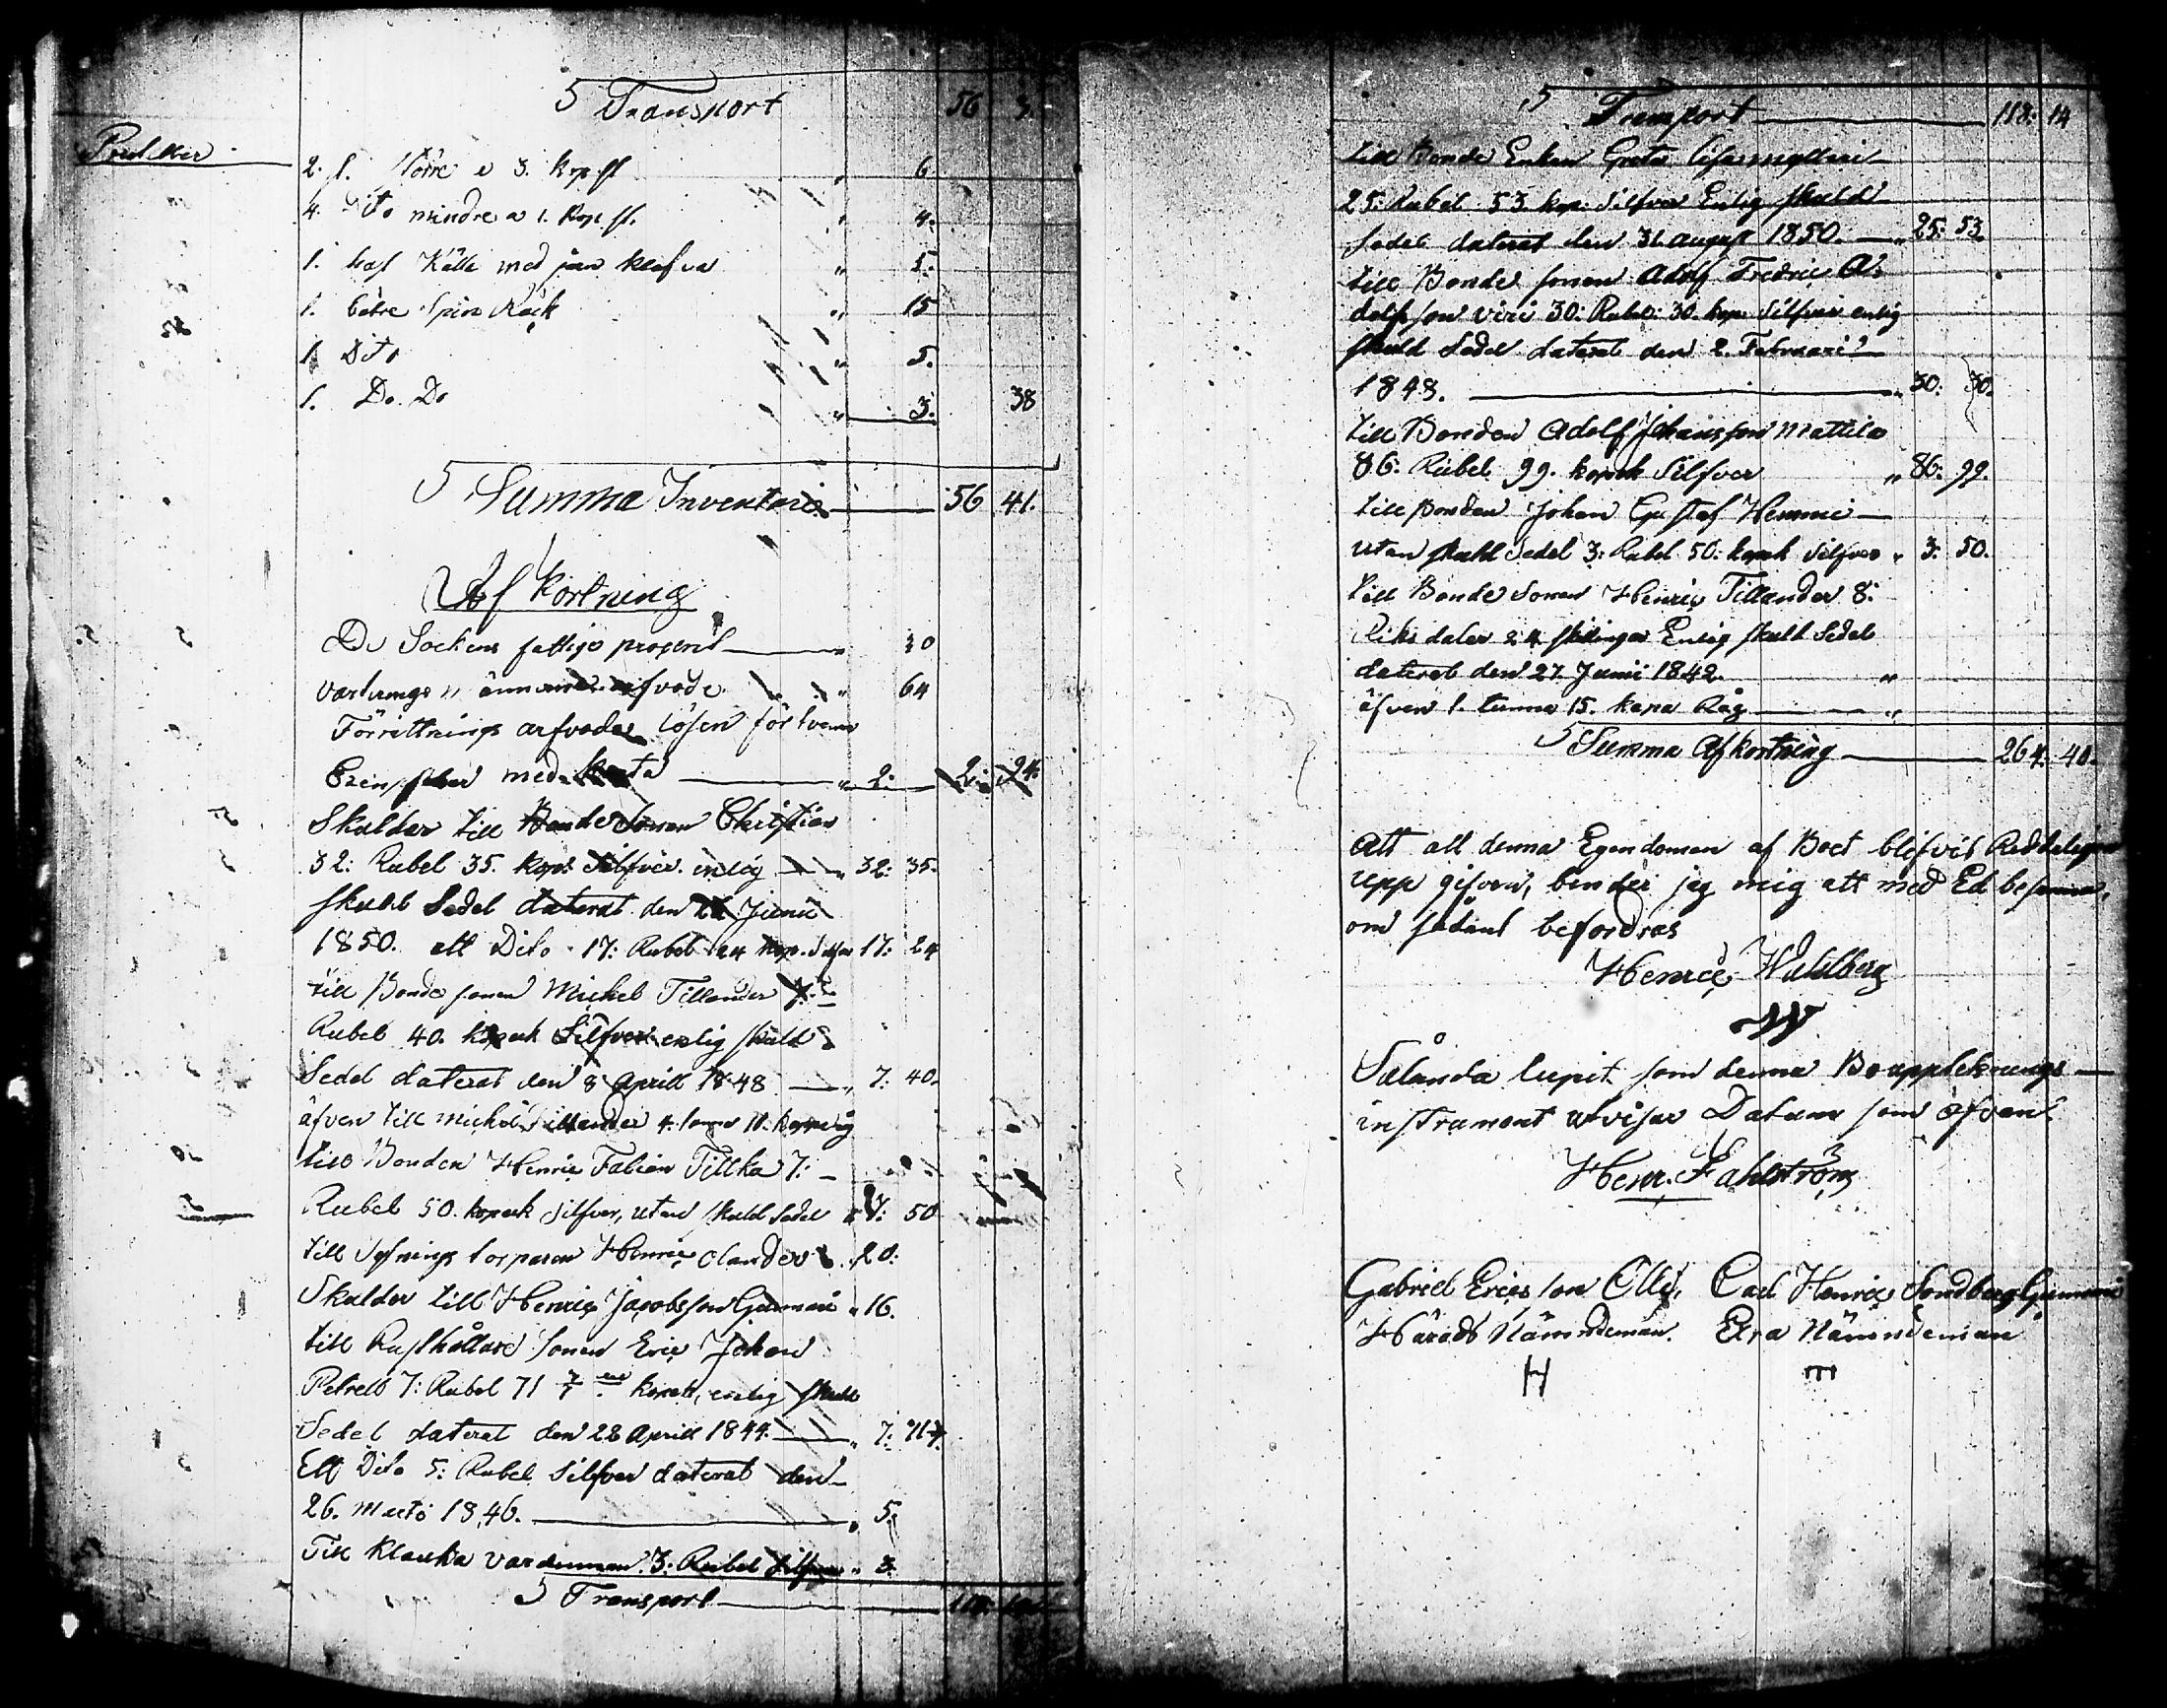 5 Transport 56 3.
2. st. större a 3. kop st " 6
4. Dito mindre a 1. Kop. st. " 4.
1. Käll med jern klafva " 5.
1. bätre Spin Råck " 15
1. Dito " 5.
1. Do. Do " 3. 38
5 Summa Inventarie 56 41.
Af Kortning
De Sockens fattige procent " 30
Värderings männernes arfvode " 64
Förrättnings arfvodes lösen för tvenne
Exemplar med karta " 2: 2: 94.
Skulder till Bonde Sonen Christian
32: Rubel 35. kop: Silfver. enlig " 32: 35.
skuld Sedel daterat den Junii
1850. ett Dito 17: Rubel 24 kop. Silfver 17: 24
till Bonde sonen Michel Tillander 7:
Rubel 40. kopek Silfver enlig skuld
Sedel daterat den 8 Aprill 1848 " 7: 40.
äfven till Michel Tillander 4. 
till Bonden Henric Fabian Tillka 7:
Rubel 50. kopek silfver, utan skuld sedel " 7: 50
till Sytnings torparen Henric Olander 20:
Skulder till Henric Jacobsson Gummi " 16.
till Rusthållare sonen Eric Johan
Petrell 7: Rubel 71 kopek, enlig skuld
Sedel daterat den 28 Aprill 1844. " 7: 71
Ett Dito 5: Rubel Silfver daterat den
26. Martii 1846. " 5:
Till Klauka 3: Rubel silfver " 3.
5 Transport 118: 14
5 Transport 118: 14
till Bonde Enkan Greta Lisa
25: Rubel 53 kop: Silfver Enlig skuld
sedel daterat den 31 august 1850. " 25: 53.
till Bonde sonen Adolf Fredric A:
dolfsson 30: Rubel: 30. kop: Silfver enlig
skuld Sedel daterat den 2. Februari
1848. " 30: 30.
till Bonden Adolf Johansson Mattila
86: Rubel 99. kopek Silfver " 86: 99.
till bonden Johan Gustaf Hemmi
utan skuld Sedel 3: Rubel 50: kopek silfver " 3: 50.
till Bonde Sonen Henric Tillander 8:
Riks daler 24 skillingar Enlig skuld Sedel
daterat den 27 Junii 1842. "
äfven 1. tunna 15. kapa Råg "
5 Summa Afkortning 264: 40.
Att all denna Egendomen af Boet blifvit Redeligen
Upp gifven, binder jag mig att med Ed
om sådant befordras
Henric Wahlberg
W
Sålunda lupit som denna Bouppteknings
instrument utvisar Datum som ofvan.
Henr. Fahlström
Gabriel Ericsson Olli, Carl Henric Sondberg Gummi
Härads Nämndeman. Extra Nämndeman
H